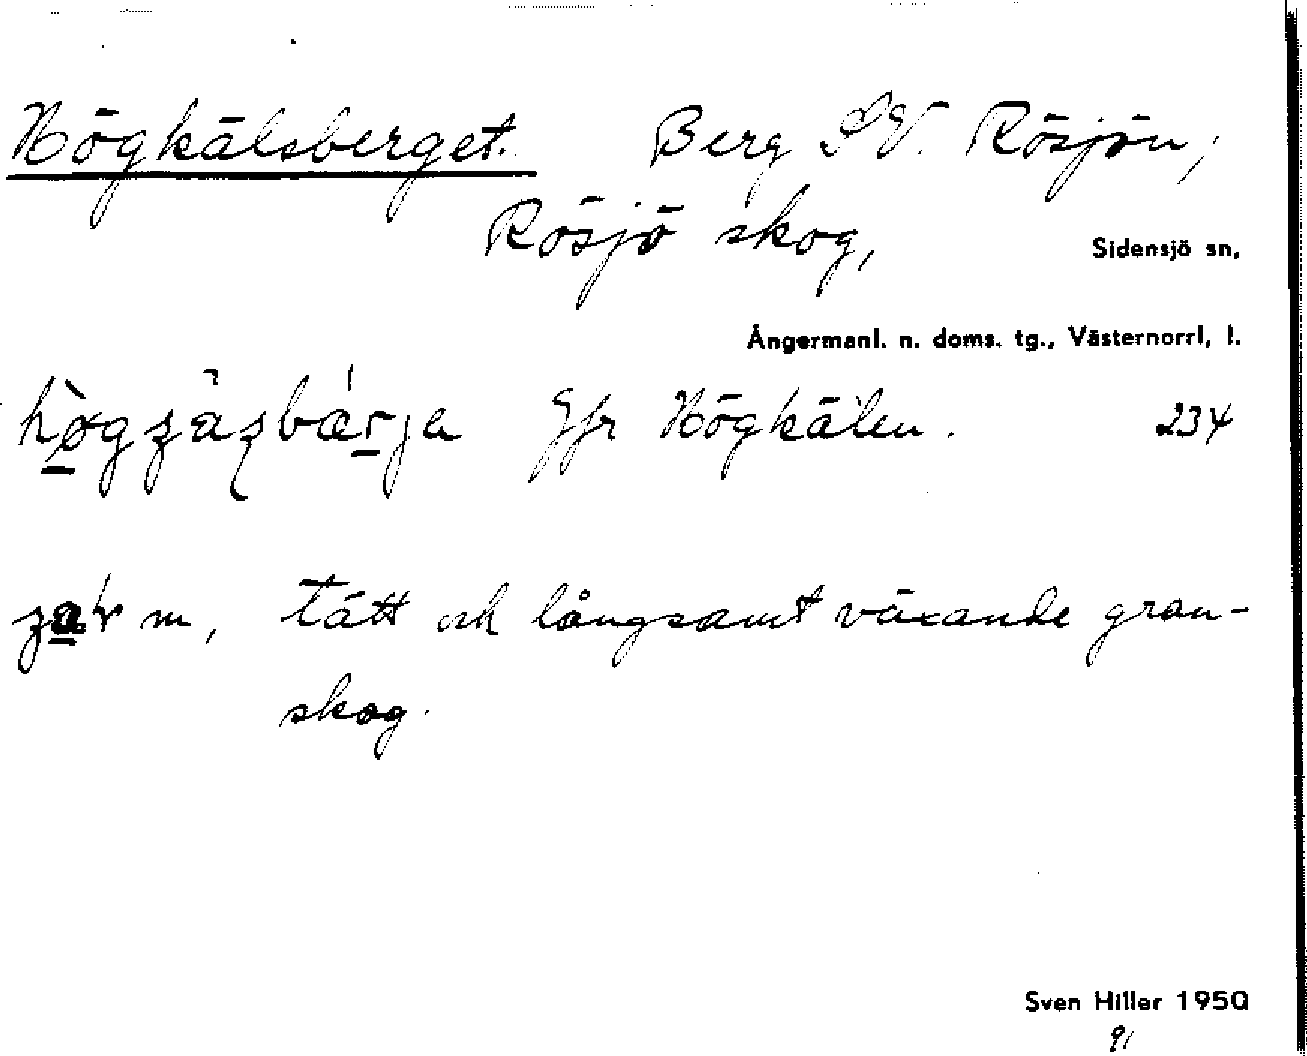 Högkälsberget. Berg SV. Rösjön,
Rösjö skog,
Sidensjö sn,
Ångermanl. n. doms. tg., Västernorrl. l.
Jfr Högkälen. 234
m, tätt och långsamt växande gran-
skog.
Sven Hiller 1950
91